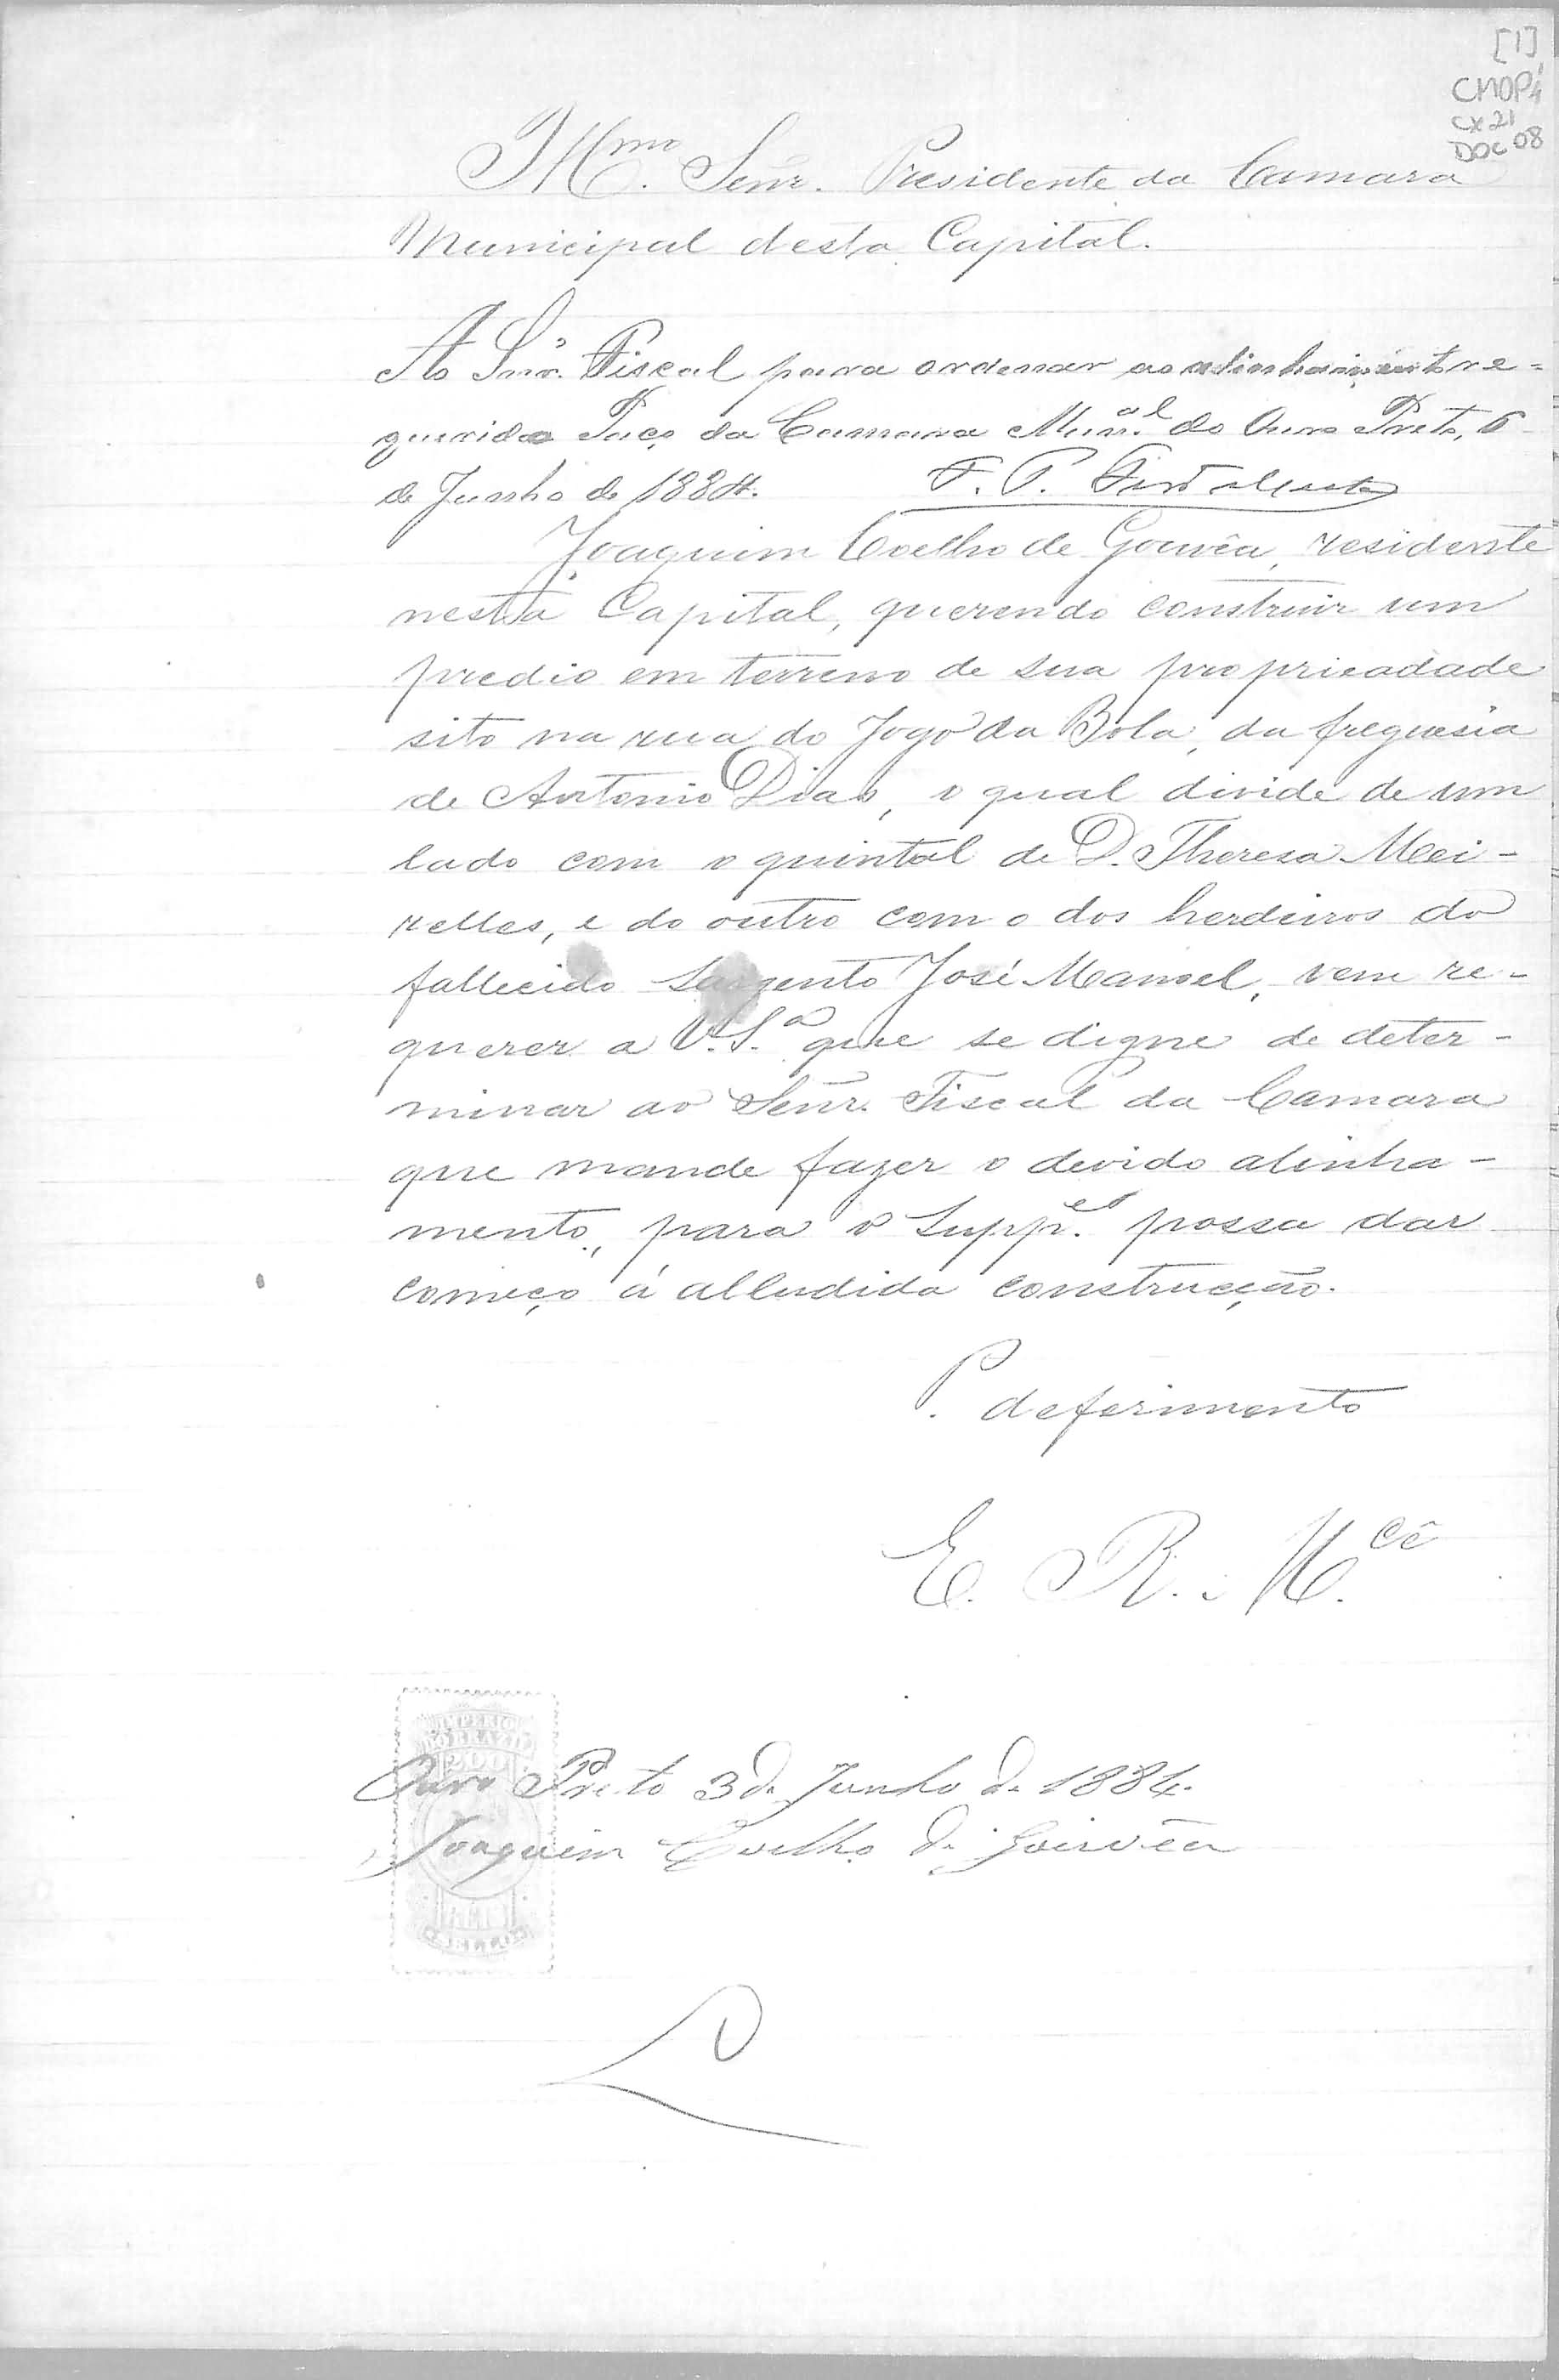 [1]
CMOP
CX 21
DOC 08
Illmo. Senr. Presidente da Camara
Municipal desta Capital.
Ao Snr. Fiscal para ordenar ao alinhamento re=
querido Paço da Camara Mun.al do Ouro Preto, 6
de Junho de 1884. F. P.
Joaquim Coelho de Gouvêa, residente
nesta Capital, querendo construir um
predio em terreno de sua proprieadade
sito na rua do Jogo da Bola, da freguesia
de Antonio Dias, o qual divide de um
lado com o quintal de D. Theresa Mei-
relles, e do outro com o dos herdeiros do
fallecido Sargento José Manoel, vem re-
querer a V. S.a que se digne de deter-
minar ao Senr. Fiscal da Camara
que mande fazer o devido alinha-
mento, para o Supp.e possa dar
começo á alludida construcção.
P. deferimento
E. R. M.cê
IMPERIO
DO BRAZIL
200
Ouro Preto 3 de Junho de 1884.
Joaquim Coelho de Gouvêa
REIS
SELLO